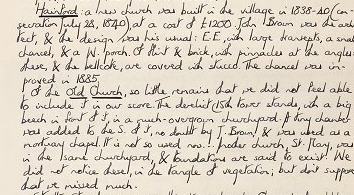 Hainford: a new church was built in the village in 1838-40 (con-
secration July 28, 1840) at a cost of £1200. John Brown was the archi-
tect, & the design was his usual: E.E., with large transepts, a small
chancel, & a W. porch. Of flint & brick, with pinnacles at the angles
these, & the bellcote, are covered with stucco. The chancel was im-
proved in 1885.
Of the Old Church, so little remains that we did not feel able
to include it in our score. The derelict 15th tower stands, with a big
beech in front of it, in a much-overgrown churchyard. A tiny chamber
was added to the S. of it, no doubt by J. Brown, & was used as a
mortuary chapel. It is not so used now. church, St. Mary, was
in the same churchyard, & foundations are said to exist. We
did not notice these, in the tangle of vegetation; but don't suppose
that we missed much.